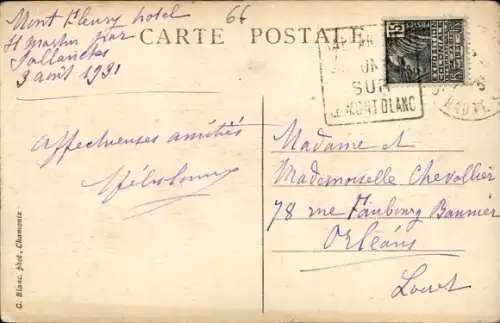 Mont Fleury hotel
St Martin par
Sallanches
3 août 1931
66
CARTE POSTALE
SUR
MONT BLANC
15
Affectueuses amitiés
Madame et
Mademoiselle Chevallier
78 rue Fg Faubourg Bannier
Orléans
Loiret
G. Blanc, phot., Chamonix